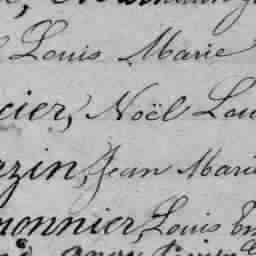 Louis Marie
cier, Noël Lou
zin, Jean Marie
monnier, Louis Em